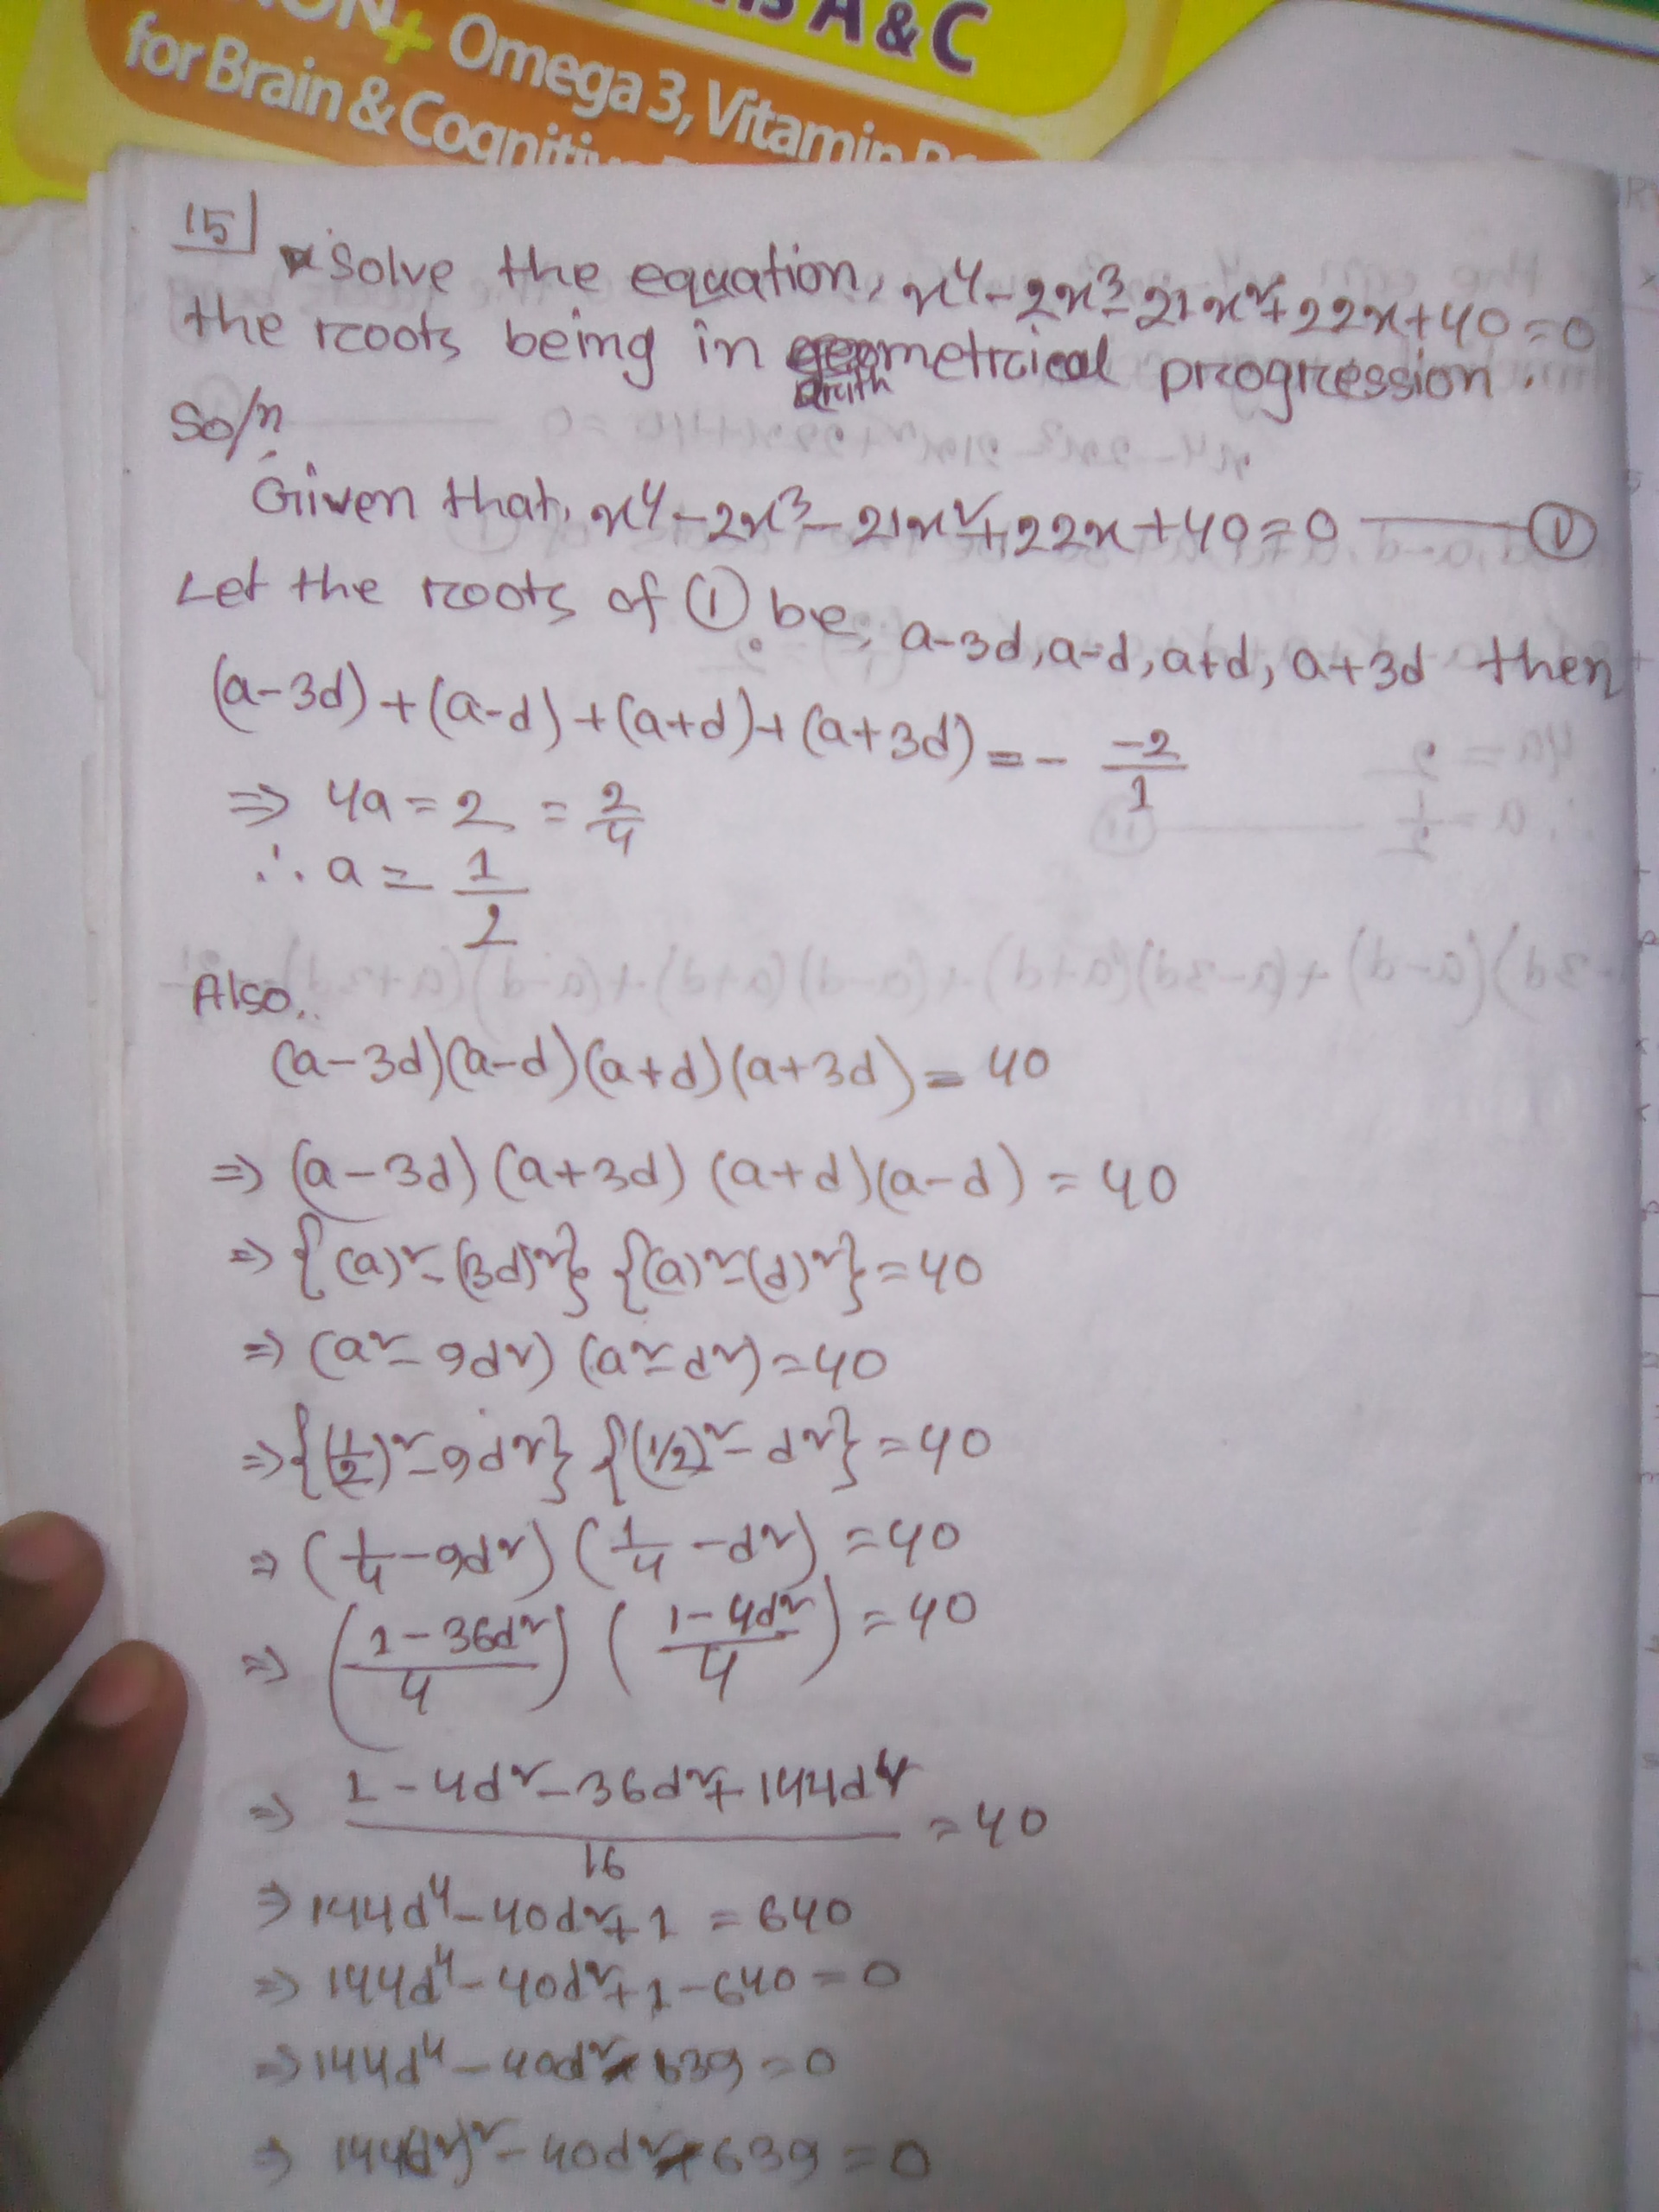 Omega 3, Vitamin
for Brain & Cogniti
A & C
15
Solve the equation, x⁴-2x³-21x²+22x+40=0
the roots being in geometrical progression.
arith
Soln
Given that, x⁴-2x³-21x²+22x+40=0 ——— ①
Let the roots of ① be, a-3d, a-d, a+d, a+3d then
(a-3d)+(a-d)+(a+d)+(a+3d) = - -2/1
⇒ 4a = 2 = 2/4
∴ a = 1/2
Also,
(a-3d)(a-d)(a+d)(a+3d) = 40
⇒ (a-3d)(a+3d)(a+d)(a-d) = 40
⇒ {(a)²-(3d)²} {(a)²-(d)²} = 40
⇒ (a²-9d²) (a²-d²) = 40
⇒ {(1/2)²-9d²} {(1/2)²-d²} = 40
⇒ (1/4-9d²) (1/4-d²) = 40
⇒ (1-36d²/4) (1-4d²/4) = 40
⇒ 1-4d²-36d²+144d⁴/16 = 40
⇒ 144d⁴-40d²+1 = 640
⇒ 144d⁴-40d²+1-640 = 0
⇒ 144d⁴-40d²-639 = 0
⇒ 144(d²)²-40d²-639 = 0